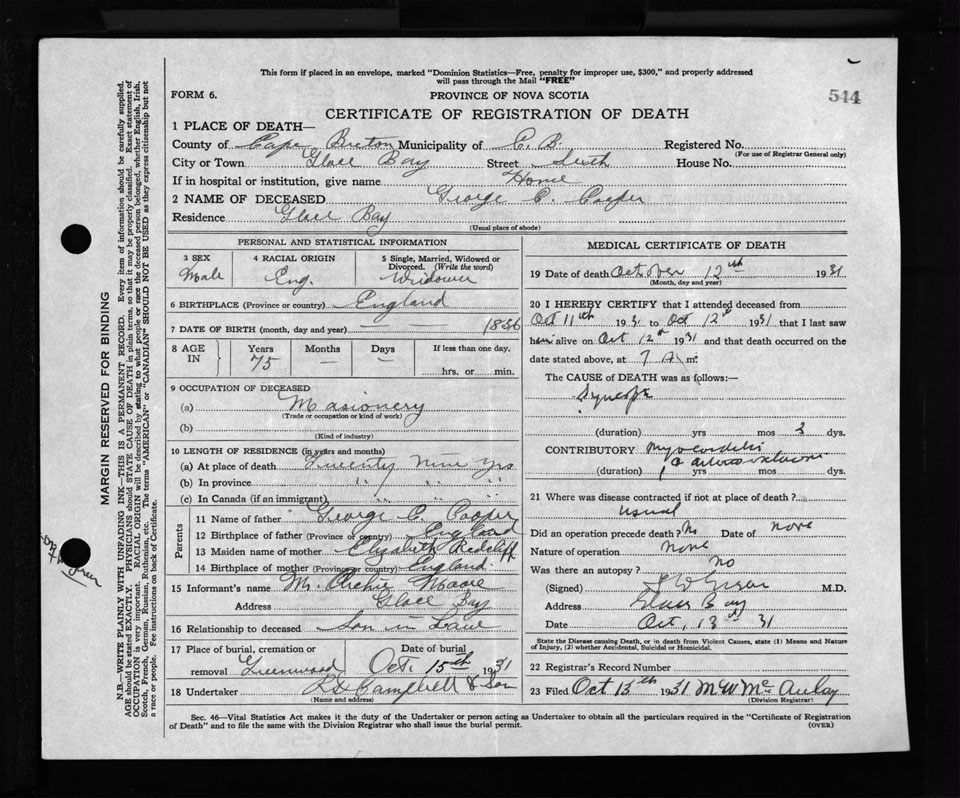 This form if placed in an envelope, marked "Dominion Statistics—Free, penalty for improper use, $300," and properly addressed
will pass through the Mail "FREE"
FORM 6.
PROVINCE OF NOVA SCOTIA
544
CERTIFICATE OF REGISTRATION OF DEATH
1 PLACE OF DEATH—
County of Cape Breton Municipality of C. B. Registered No.
(For use of Registrar General only)
City or Town Glace Bay Street South House No.
If in hospital or institution, give name Home
2 NAME OF DECEASED George C. Cooper
Residence Glace Bay
(Usual place of abode)
PERSONAL AND STATISTICAL INFORMATION
3 SEX Male
4 RACIAL ORIGIN Eng.
5 Single, Married, Widowed or Divorced. (Write the word) Widower
6 BIRTHPLACE (Province or country) England
7 DATE OF BIRTH (month, day and year) — — 1856
8 AGE IN
Years Months Days If less than one day,
75 — — hrs. or min.
9 OCCUPATION OF DECEASED
(a) Masionery
(Trade or occupation or kind of work)
(b)
(Kind of industry)
10 LENGTH OF RESIDENCE (in years and months)
(a) At place of death Twenty Nine Yrs
(b) In province " " "
(c) In Canada (if an immigrant) " " "
Parents
11 Name of father George C. Cooper
12 Birthplace of father (Province or country) England
13 Maiden name of mother Elizabeth Redcliff
14 Birthplace of mother (Province or country) England
15 Informant's name Mr. Archie Moore
Address Glace Bay
16 Relationship to deceased Son in Lawe
17 Place of burial, cremation or removal Greenwood
Date of burial Oct. 15th 1931
18 Undertaker Campbell & Son
(Name and address)
MEDICAL CERTIFICATE OF DEATH
19 Date of death October 12th 1931
(Month, day and year)
20 I HEREBY CERTIFY that I attended deceased from
Oct 11th 1931 to Oct 12th 1931 that I last saw
him alive on Oct 12th 1931 and that death occurred on the
date stated above, at 7 A m.
The CAUSE of DEATH was as follows:—
Syncope
(duration) yrs mos 3 dys.
CONTRIBUTORY Myocarditis
(duration) yrs mos dys.
21 Where was disease contracted if not at place of death?
usual
Did an operation precede death? No Date of none
Nature of operation none
Was there an autopsy? no
(Signed) M.D.
Address Glace Bay
Date Oct, 13th 31
State the Disease causing Death, or in death from Violent Causes, state (1) Means and Nature
of Injury, (2) whether Accidental, Suicidal or Homicidal.
22 Registrar's Record Number
23 Filed Oct 13th 1931 M W McAulay
(Division Registrar)
Sec. 46—Vital Statistics Act makes it the duty of the Undertaker or person acting as Undertaker to obtain all the particulars required in the "Certificate of Registration
of Death" and to file the same with the Division Registrar who shall issue the burial permit.
(OVER)
MARGIN RESERVED FOR BINDING
N.B.—WRITE PLAINLY WITH UNFADING INK—THIS IS A PERMANENT RECORD. Every item of information should be carefully supplied.
AGE should be stated EXACTLY. PHYSICIANS should STATE CAUSE OF DEATH in plain terms, so that it may be properly classified. Exact statement of
OCCUPATION is very important. RACIAL ORIGIN will be described by stating to what people or race the deceased person belonged, whether English, Irish,
Scotch, French, German, Russian, Ruthenian, etc. The terms "AMERICAN" or "CANADIAN" SHOULD NOT BE USED as they express citizenship but not
a race or people. See instructions on back of Certificate.